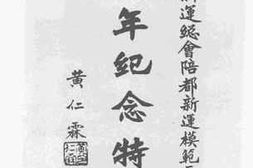 新運總會陪都新運模範
年紀念特
黃仁霖